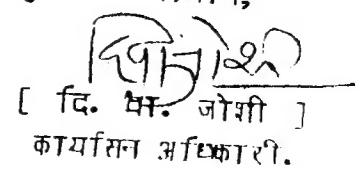 [ दि. भा. जोशी ]
कार्यासन अधिकारी.